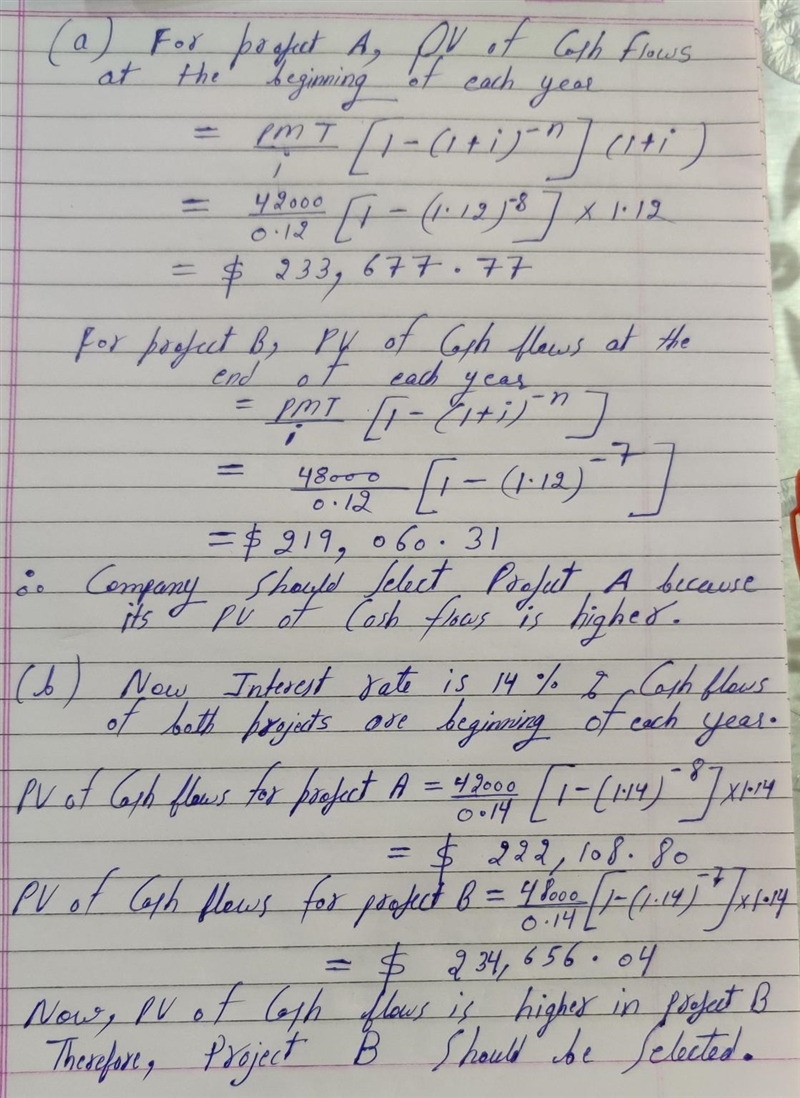 (a) For project A, PV of Cash flows
at the beginning of each year
= PMT/i [1-(1+i)^-n] (1+i)
= 42000/0.12 [1-(1.12)^-8] × 1.12
= $ 233,677.77
For project B, PV of Cash flows at the
end of each year
= PMT/i [1-(1+i)^-n]
= 48000/0.12 [1-(1.12)^-7]
= $ 219,060.31
∴ Company Should Select Project A because
its PV of Cash flows is higher.
(b) Now Interest rate is 14% & Cash flows
of both projects are beginning of each year.
PV of Cash flows for project A = 42000/0.14 [1-(1.14)^-8] × 1.14
= $ 222,108.80
PV of Cash flows for project B = 48000/0.14 [1-(1.14)^-7] × 1.14
= $ 234,656.04
Now, PV of Cash flows is higher in project B
Therefore, Project B Should be Selected.